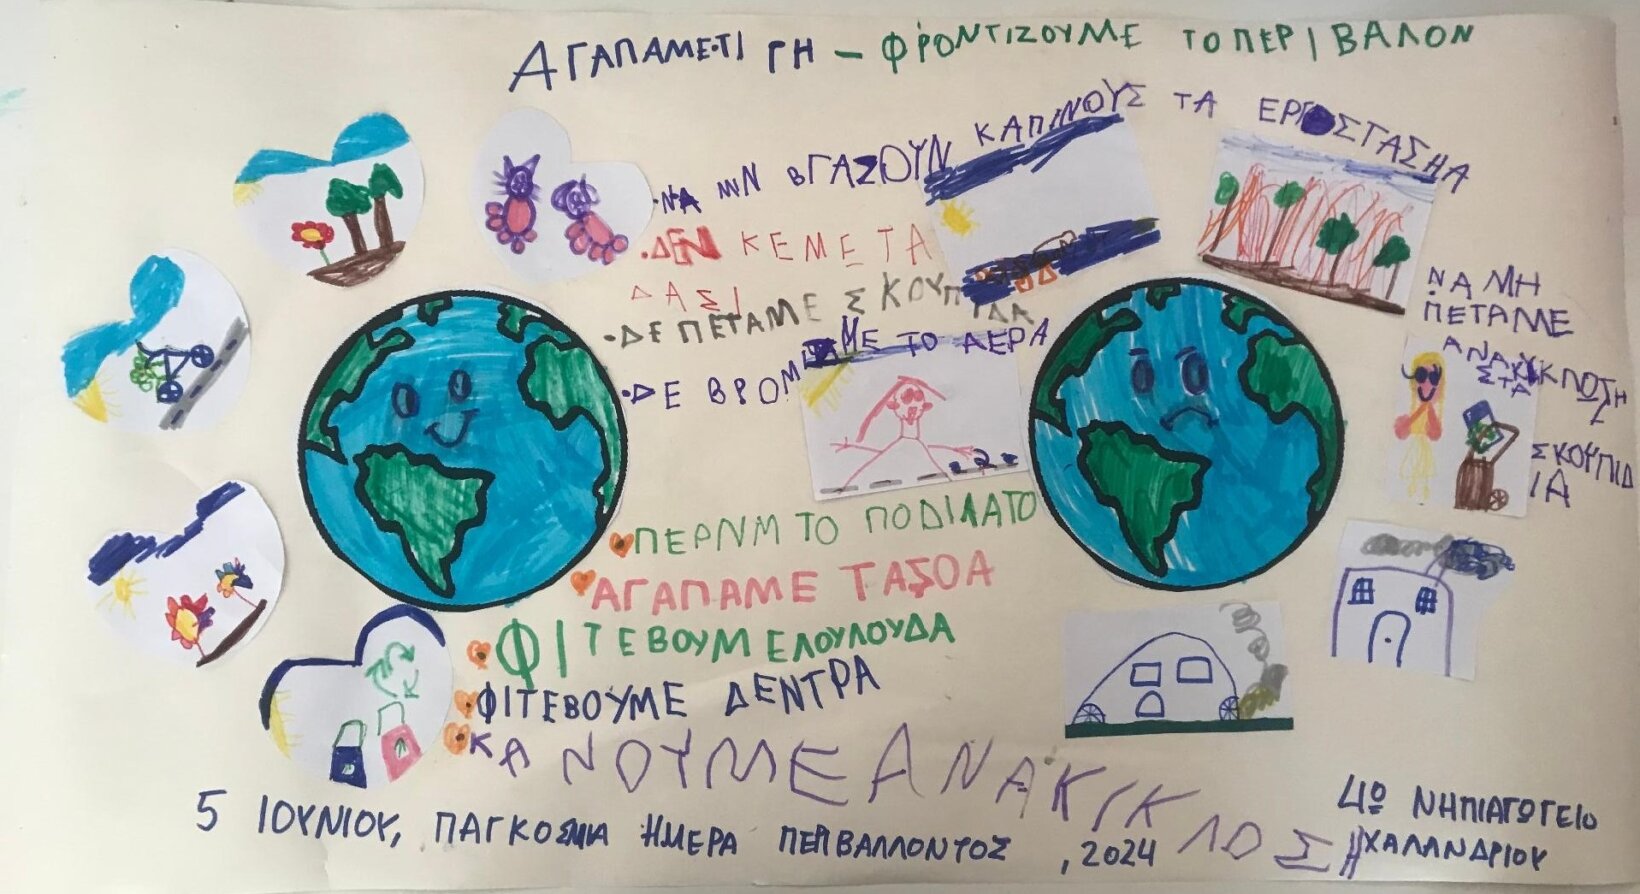 ΑΓΑΠΑΜΕ ΤΙ ΓΗ – ΦΡΟΝΤΙΖΟΥΜΕ ΤΟ ΠΕΡΙΒΑΛΟΝ
·ΝΑ ΜΙΝ ΒΓΑΖΟΥΝ ΚΑΠΙΝΟΥΣ ΤΑ ΕΡΓΟΣΤΑΣΗΑ
·ΔΕΝ ΚΕΜΕ ΤΑ
ΔΑΣΙ
·ΔΕ ΠΕΤΑΜΕ ΣΚΟΥΠΙΔΑ
·ΔΕ ΒΡΟΜΙΖΑΜΕ ΤΟ ΑΕΡΑ
ΝΑ ΜΗ
ΠΕΤΑΜΕ
ΣΤΑ
ΑΝΑΚΙΚΛΟΣΗ
ΣΚΟΥΠΙΔ
ΙΑ
ΠΕΡΝΜ ΤΟ ΠΟΔΙΛΑΤΟ
ΑΓΑΠΑΜΕ ΤΑ ΖΟΑ
ΦΙΤΕΒΟΥΜΕ ΛΟΥΛΟΥΔΑ
ΦΙΤΕΒΟΥΜΕ ΔΕΝΤΡΑ
ΚΑΝΟΥΜΕ ΑΝΑΚΙΚΛΟΣΗ
5 ΙΟΥΝΙΟΥ, ΠΑΓΚΟΣΜΙΑ ΗΜΕΡΑ ΠΕΡΙΒΑΛΛΟΝΤΟΣ, 2024
4º ΝΗΠΙΑΓΩΓΕΙΟ
ΧΑΛΑΝΔΡΙΟΥ